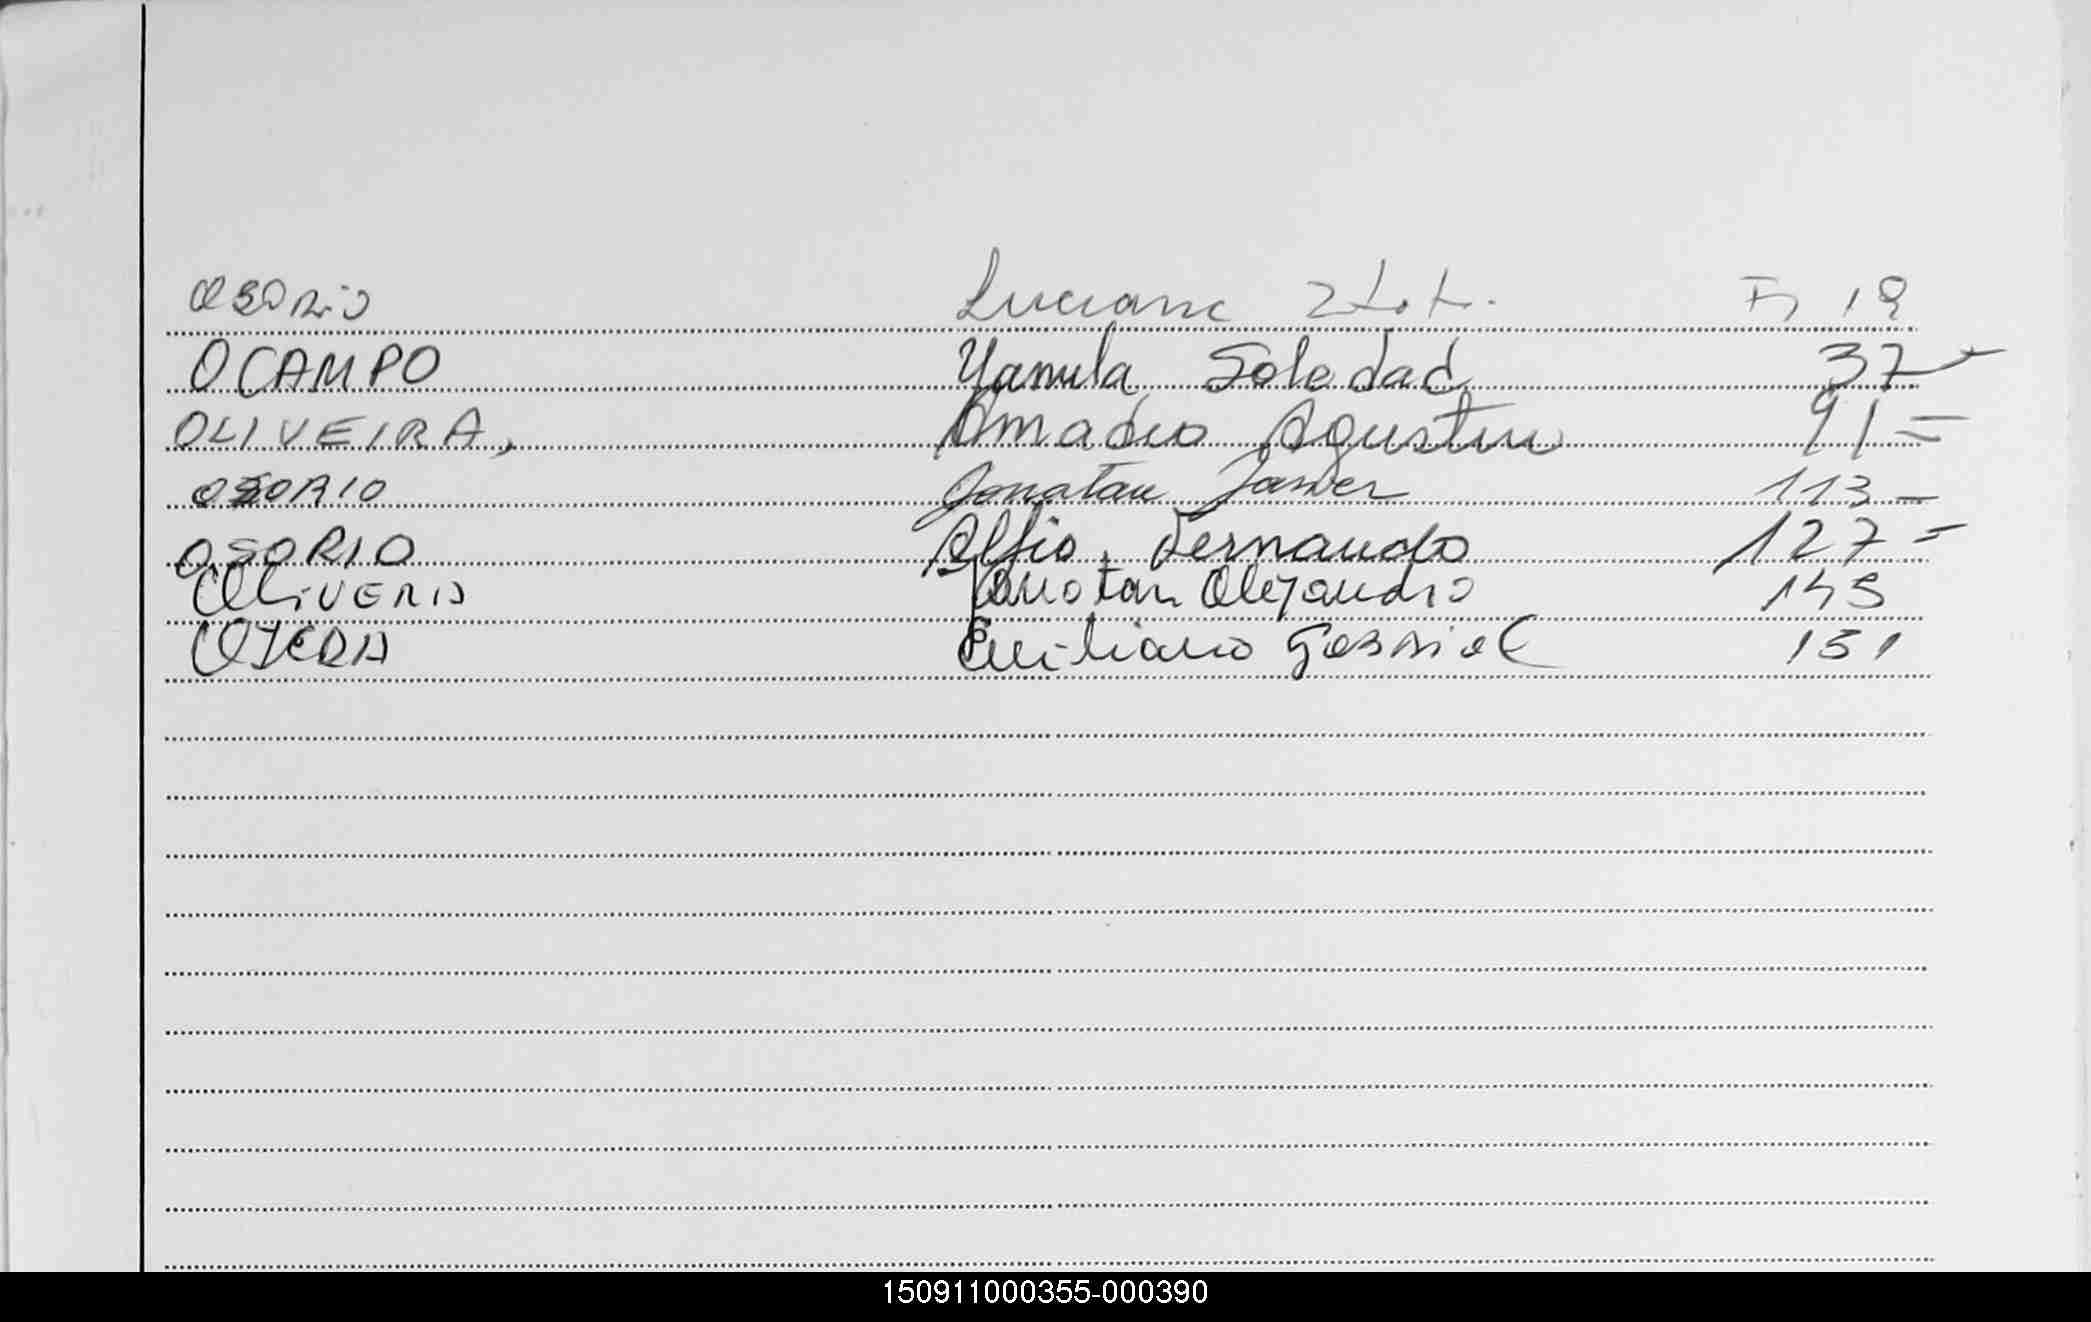 OSORIO Luciana F 19
OCAMPO Yamila Soledad 37
OLIVEIRA, Amadeo Agustin 91 =
OSORIO Jonatan Javier 113 -
OSORIO Alfio Fernando 127 =
OLIVERIO Jonatan Alejandro 145
OJEDA Emiliano Gabriel 151
150911000355-000390